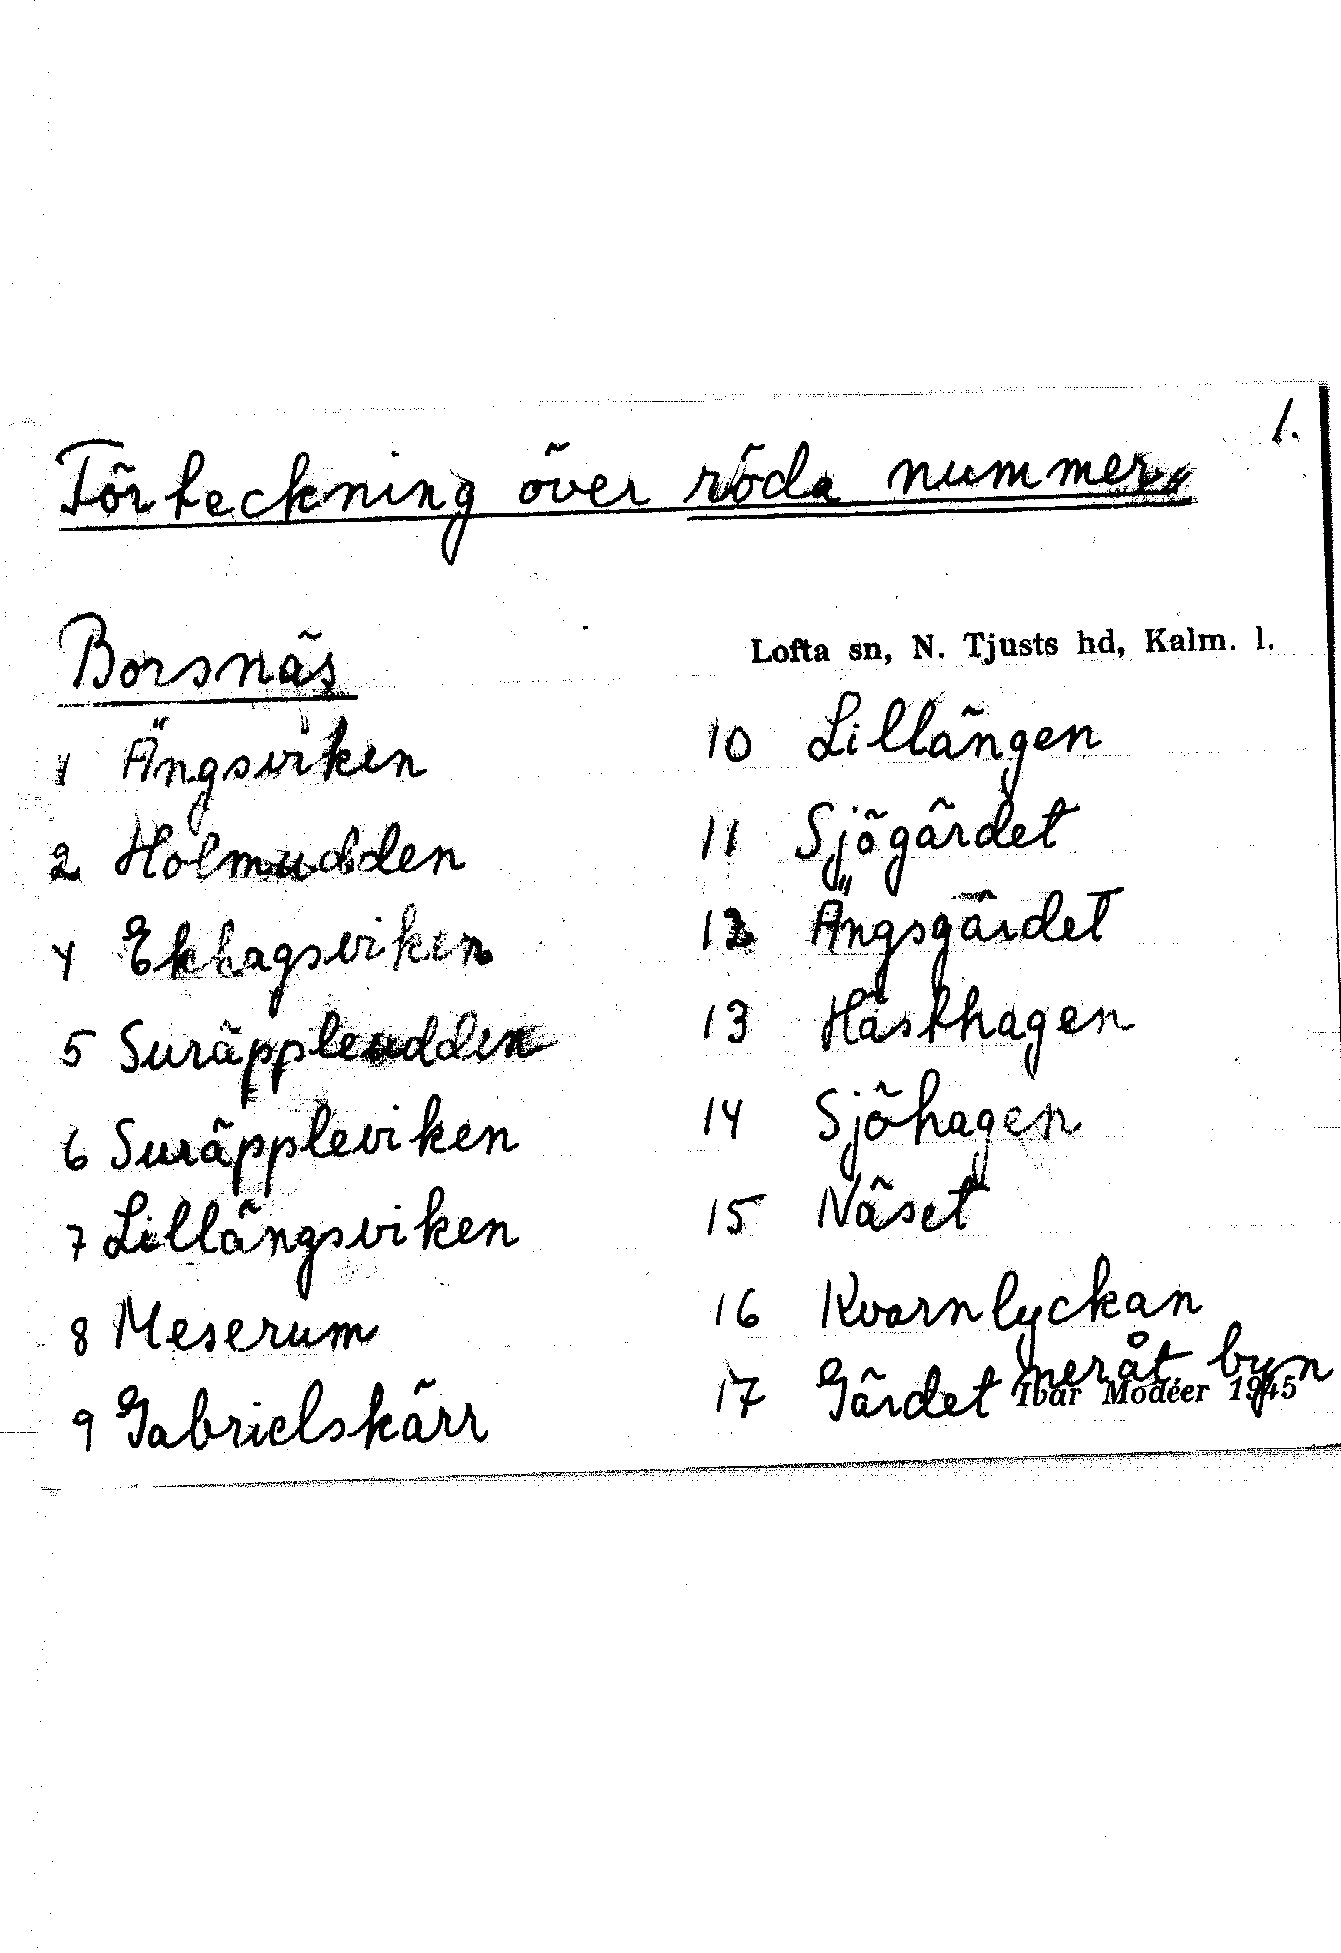 1.
Förteckning över röda nummer
Borsnäs
Lofta sn, N. Tjusts hd, Kalm. l.
1 Ängsviken
2 Holmudden
4 Ekhagsviken
5 Suräppleudden
6 Suräppleviken
7 Lillängsviken
8 Meserum
9 Gabrielskärr
10 Lillängen
11 Sjögärdet
12 Ängsgärdet
13 Hästhagen
14 Sjöhagen
15 Näset
16 Kvarnlyckan
17 Gärdet neråt byn
Ivar Modéer 1945